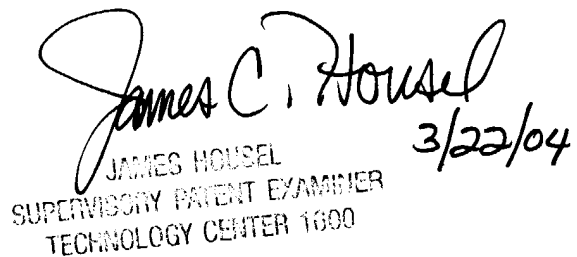 James C. Housel
3/22/04
JAMES HOUSEL
SUPERVISORY PATENT EXAMINER
TECHNOLOGY CENTER 1600